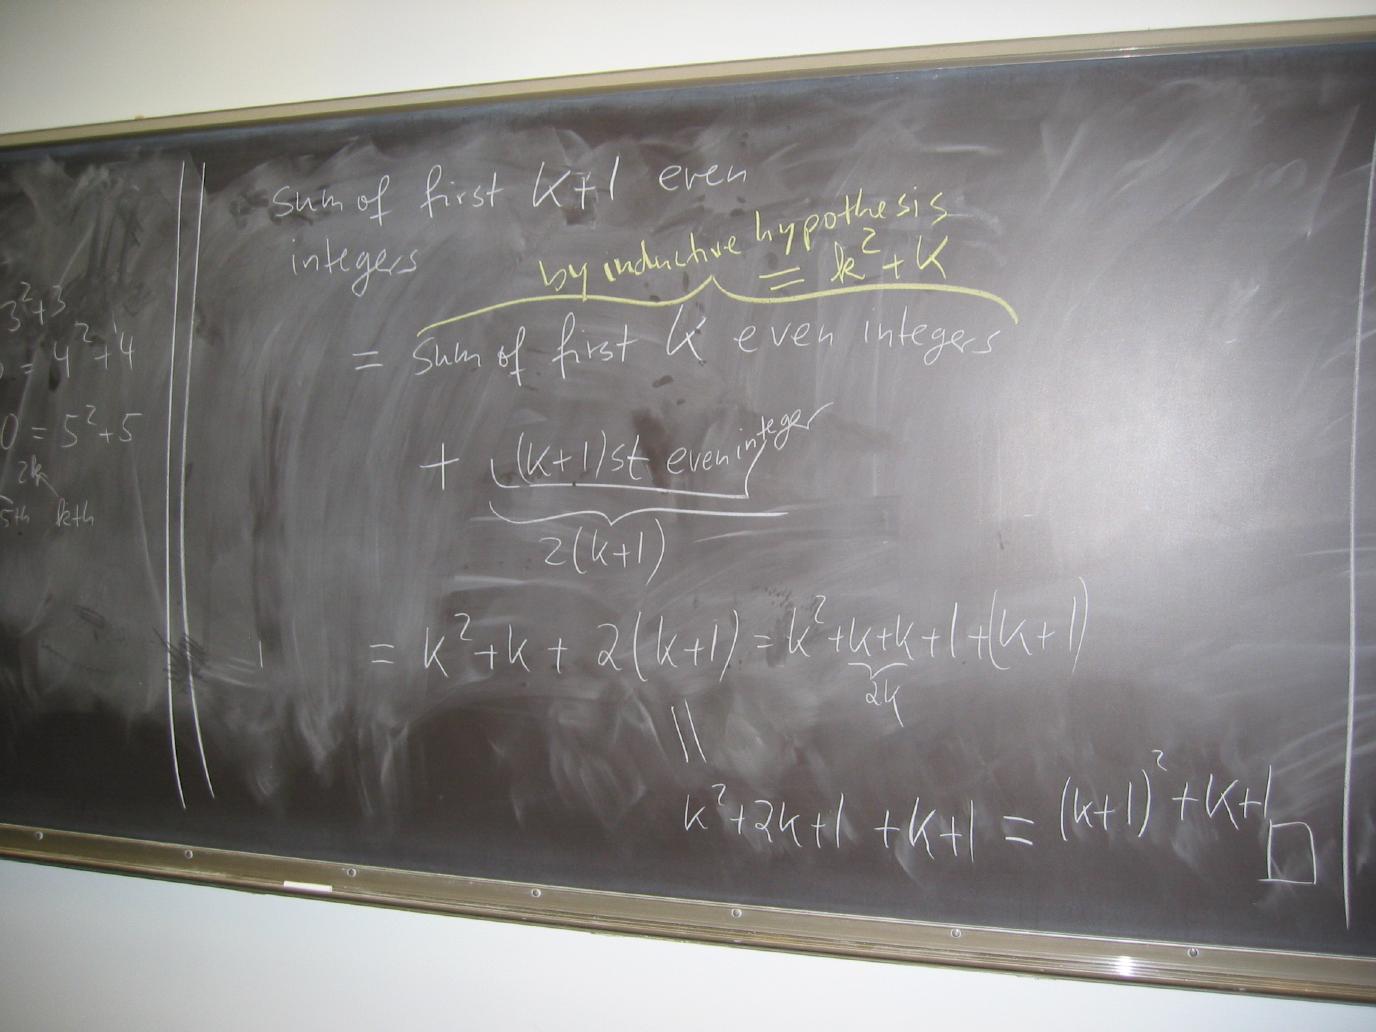 3²+3
= 4²+4
0 = 5²+5
2k
5th kth
sum of first k+1 even
integers
by inductive hypothesis
= k²+k
= sum of first k even integers
+ (k+1)st even integer
2(k+1)
= k²+k + 2(k+1) = k²+k+k+1+(k+1)
2k
||
k²+2k+1 +k+1 = (k+1)²+k+1 □